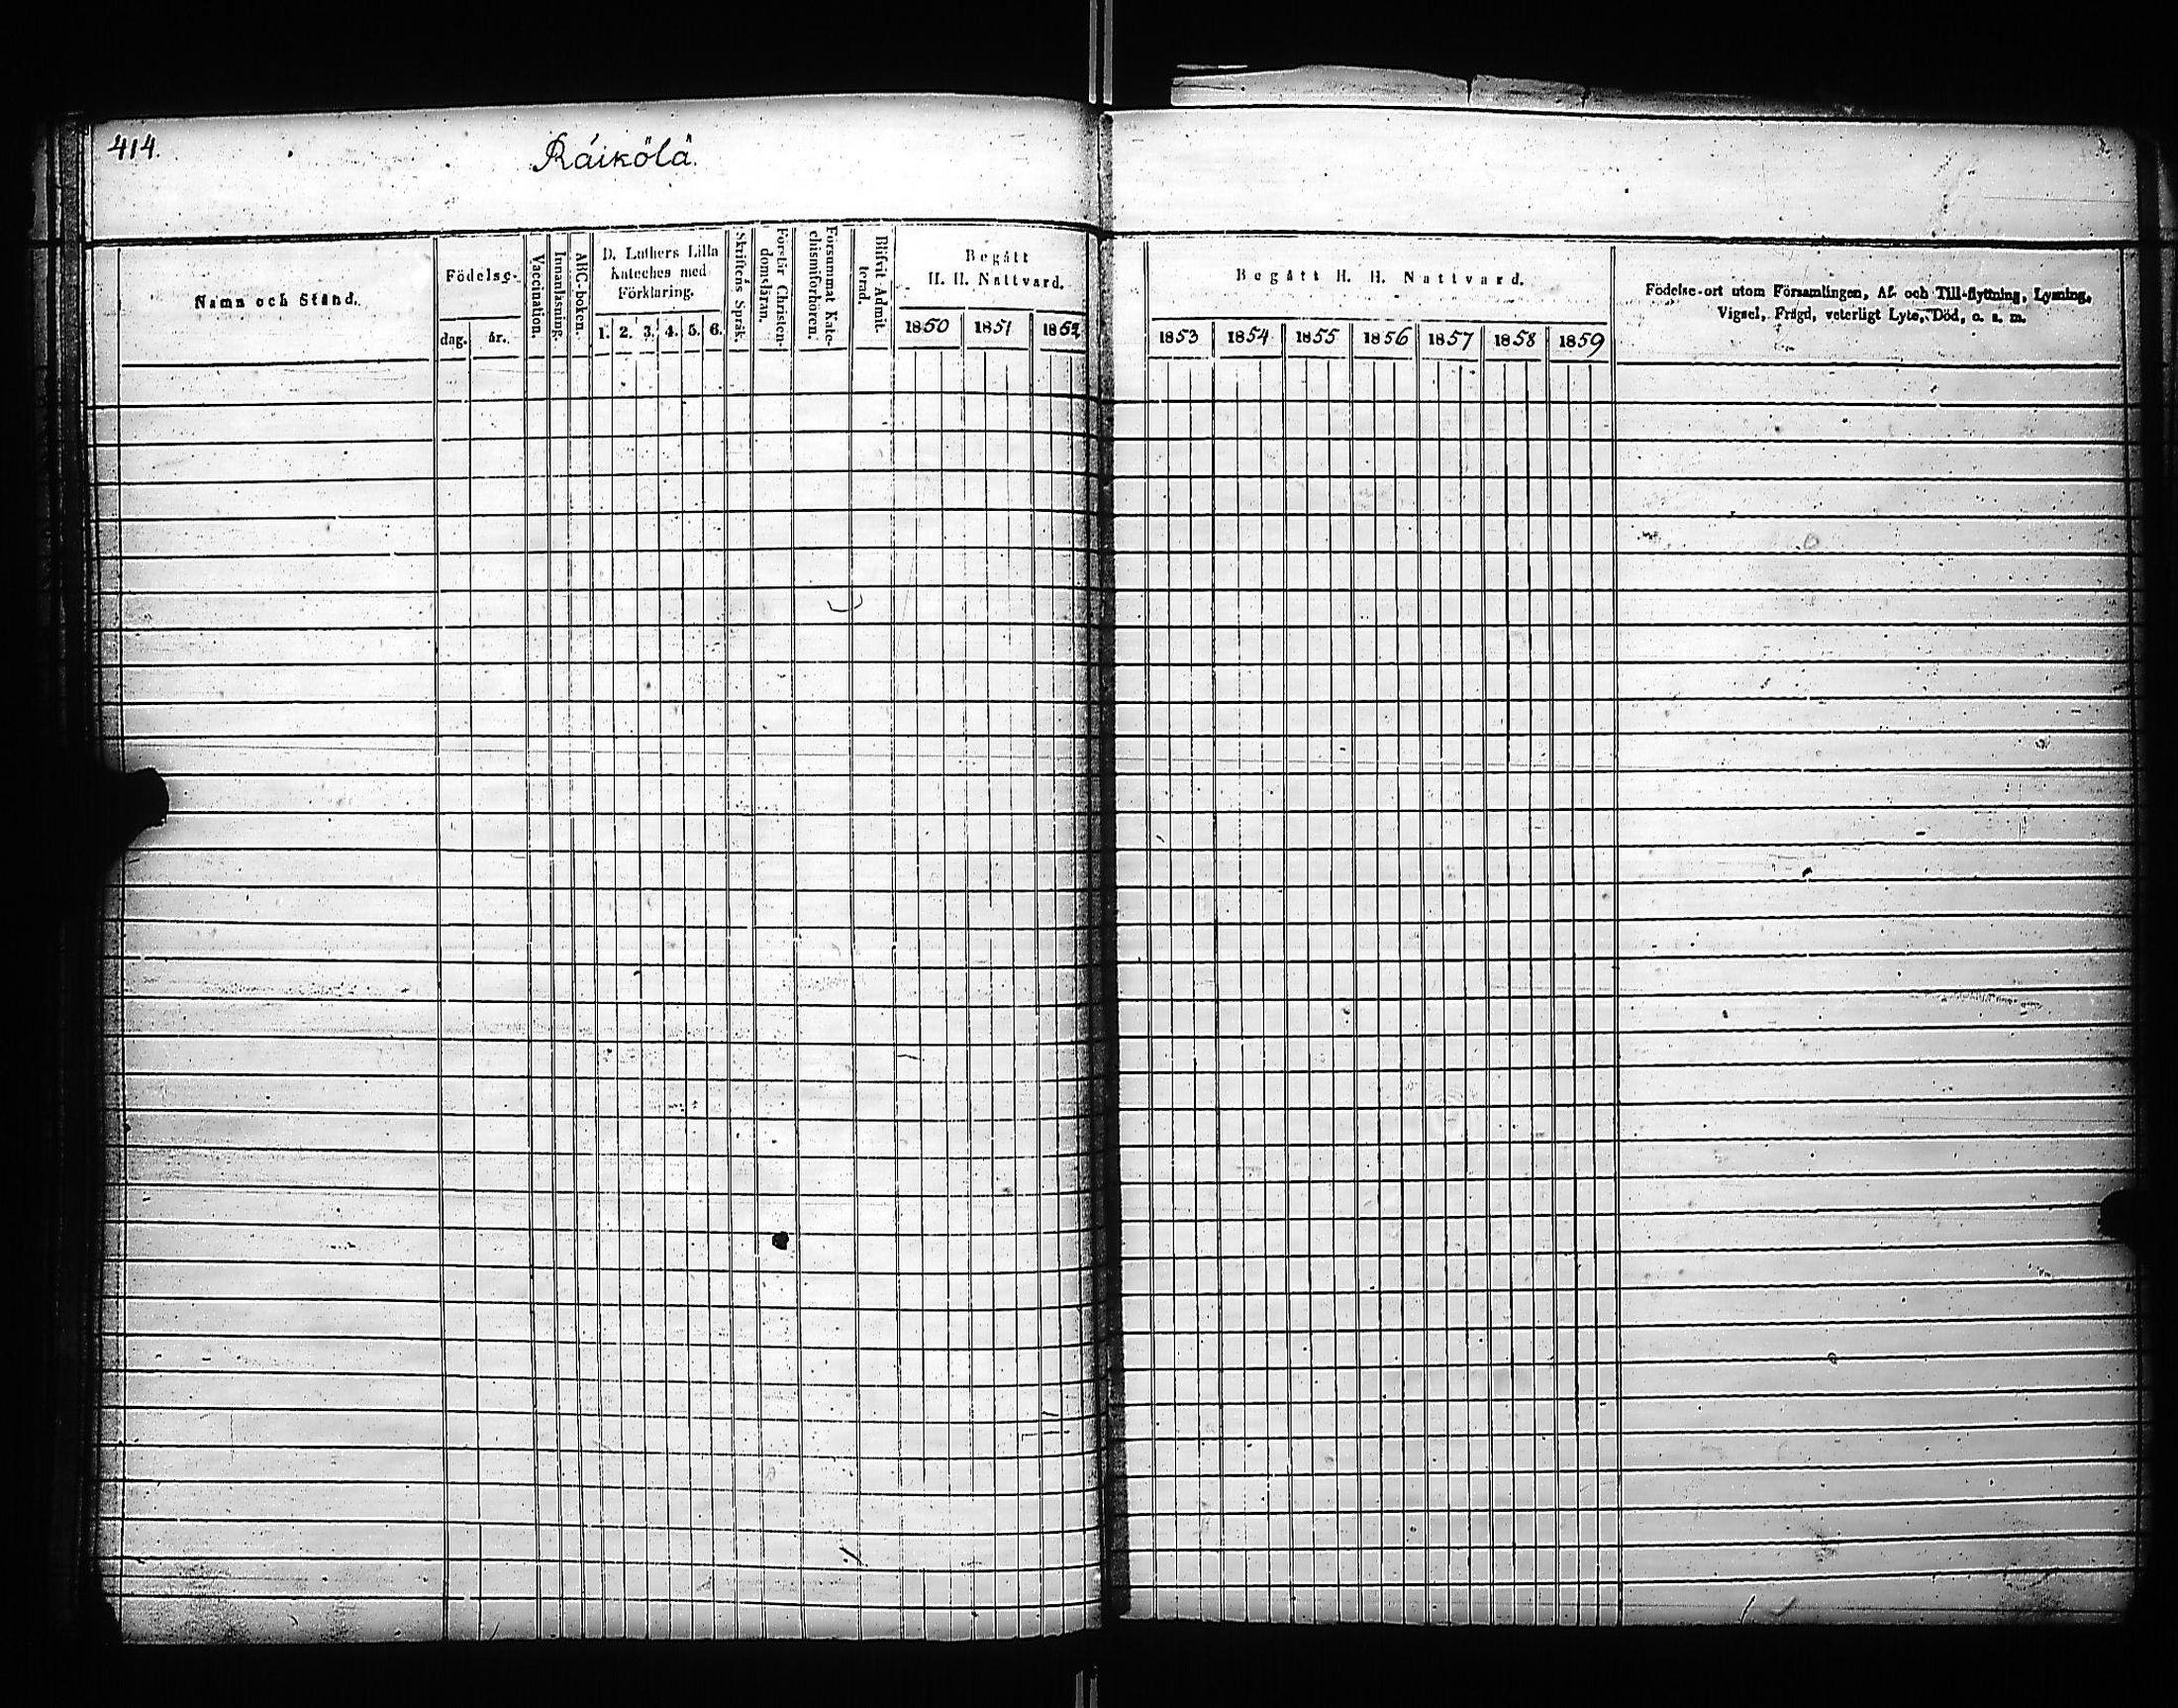 414.
Räikölä.
Namn och Stånd.
Födelse-
dag.
år.
Vaccination.
Innanläsning.
ABC-boken.
D. Luthers Lilla
Kateches med
Förklaring.
1. 2. 3. 4. 5. 6.
Skriftens Språk.
Förstår Christen-
domsläran.
Försummat Kate-
chismiförhören.
Blifvit Admit-
terad.
Begått
H. H. Nattvard.
1850 1851 1852
Begått H. H. Nattvard.
1853 1854 1855 1856 1857 1858 1859
Födelse-ort utom Församlingen, Af- och Till-flyttning, Lysning,
Vigsel, Frägd, veterligt Lyte, Död, o. s. m.